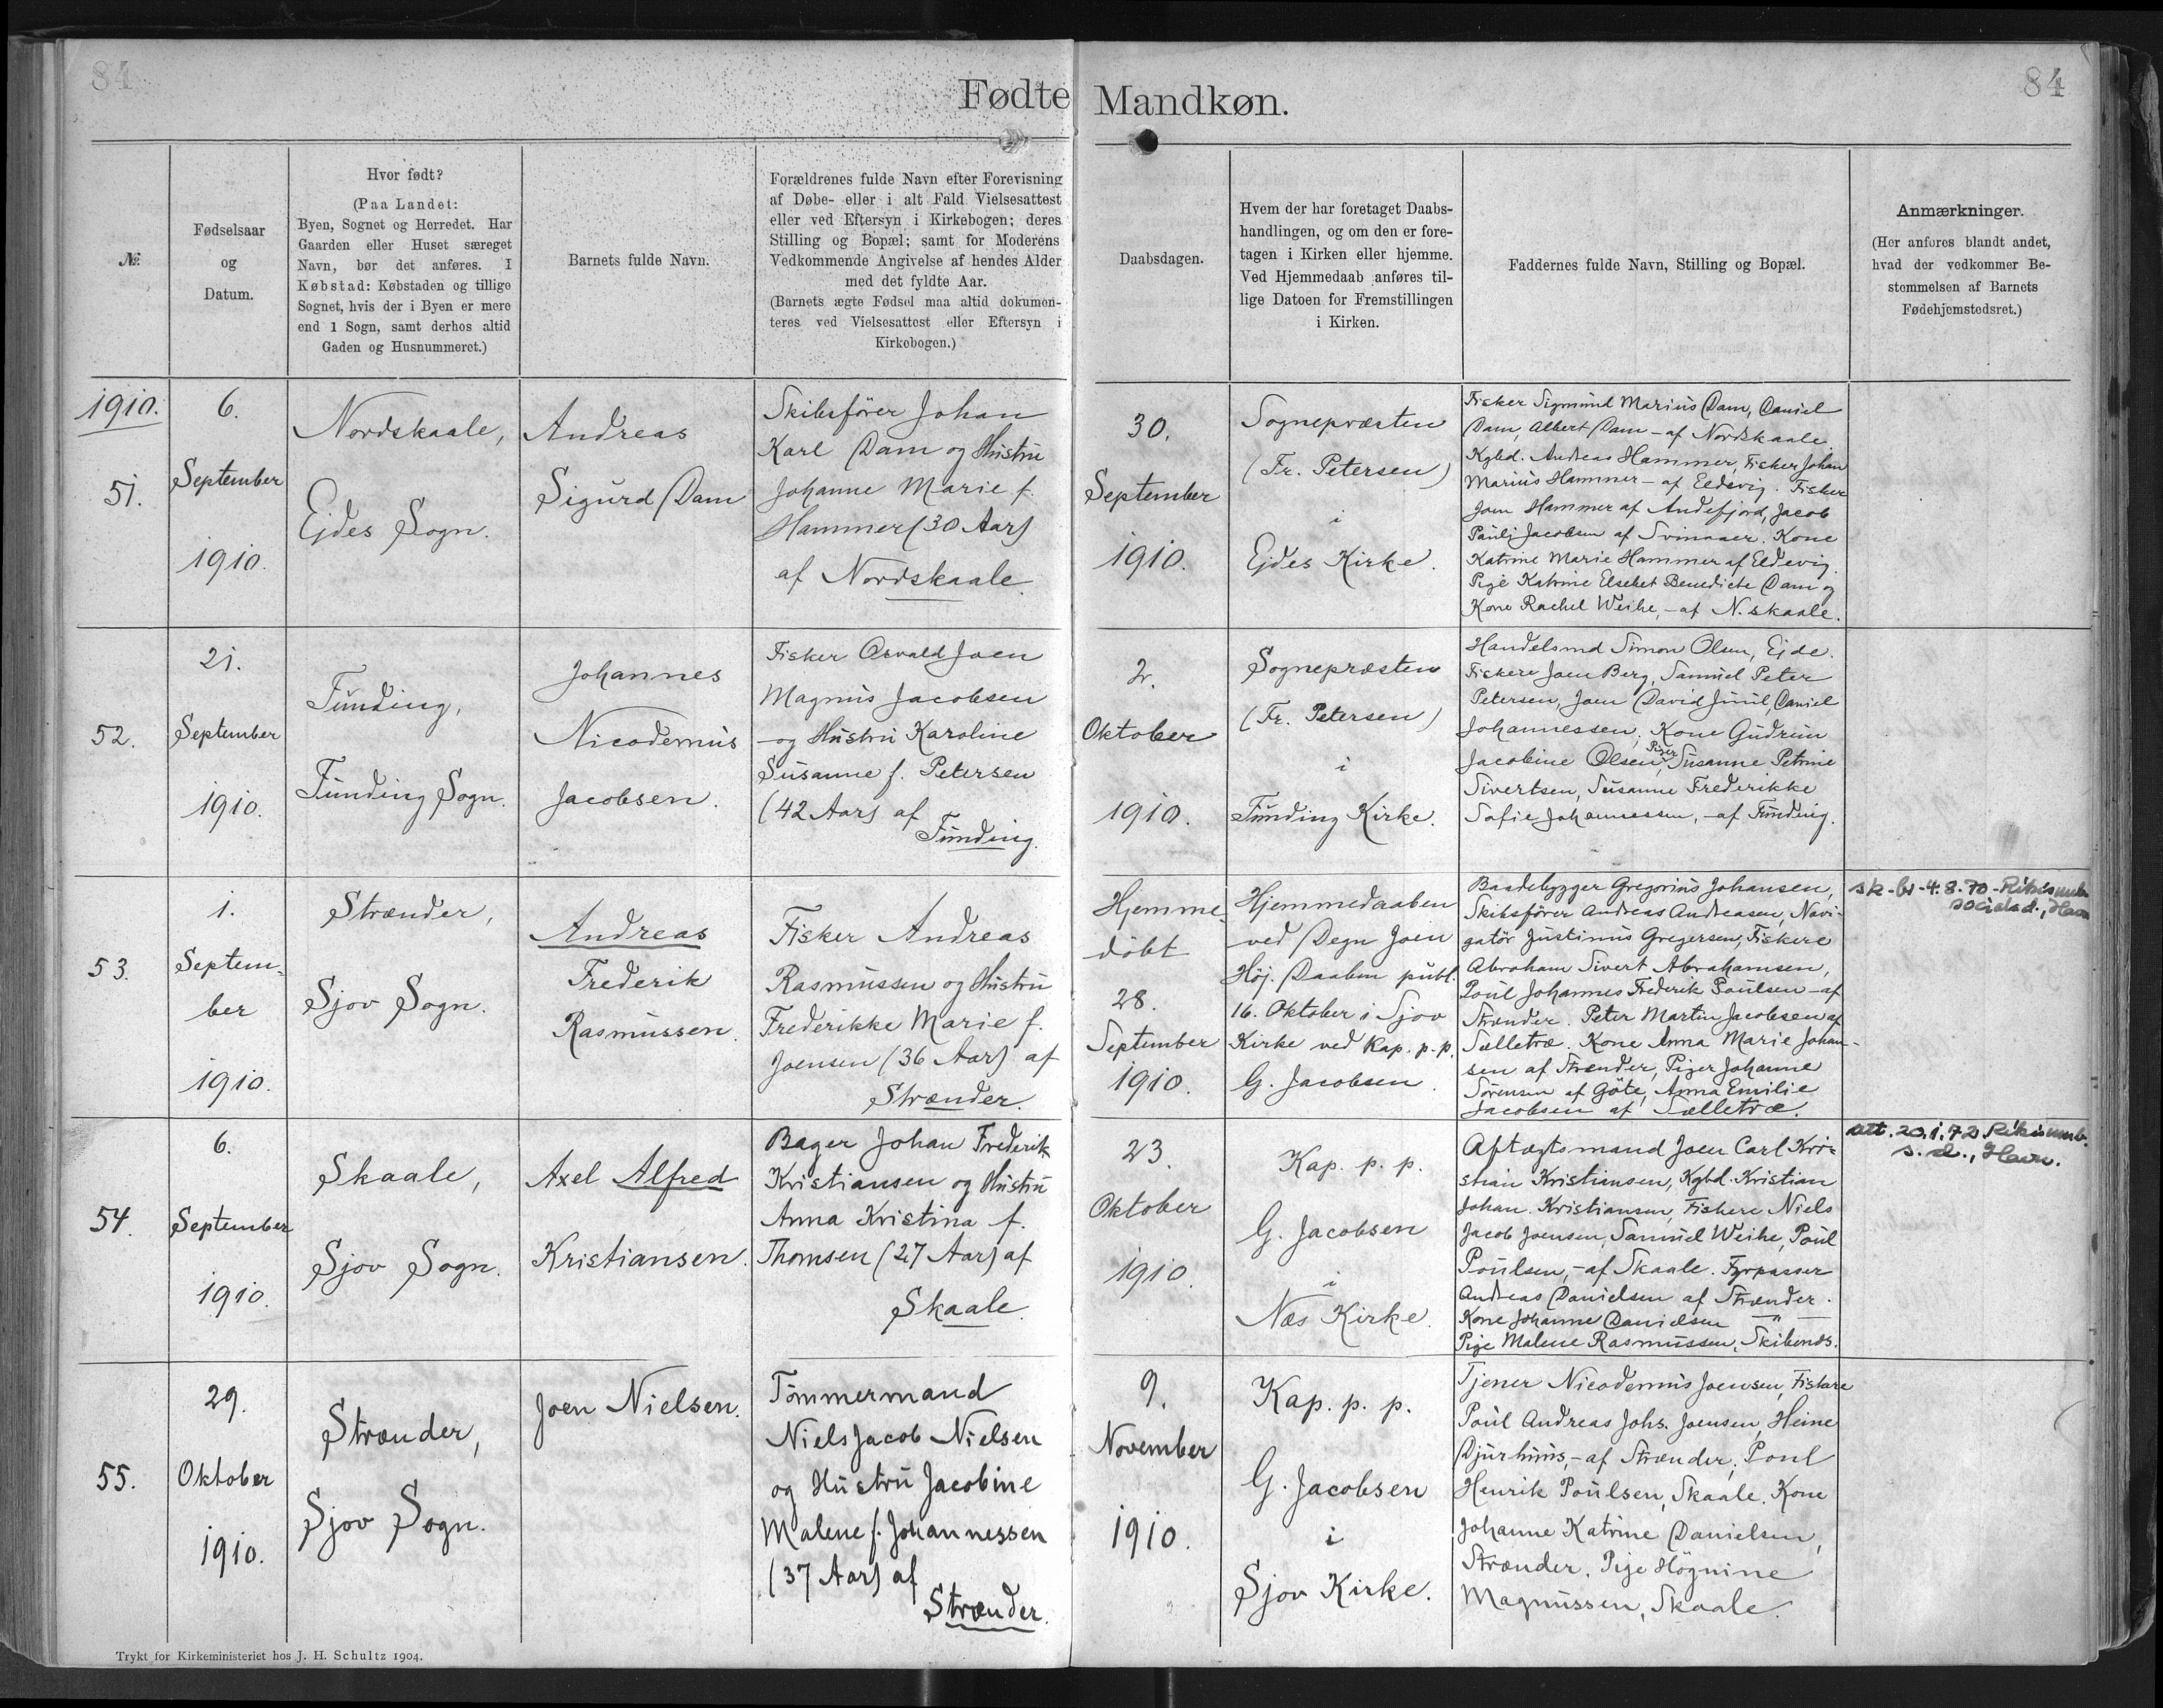 84
Fødte
Mandkøn.
84
№
Fødselsaar
og
Datum.
Hvor født?
(Paa Landet:
Byen, Sognet og Herredet. Har
Gaarden eller Huset særeget
Navn, bør det anføres. I
Købstad: Købstaden og tillige
Sognet, hvis der i Byen er mere
end 1 Sogn, samt derhos altid
Gaden og Husnummeret.)
Barnets fulde Navn.
Forældrenes fulde Navn efter Forevisning
af Døbe- eller i alt Fald Vielsesattest
eller ved Eftersyn i Kirkebogen; deres
Stilling og Bopæl; samt for Moderens
Vedkommende Angivelse af hendes Alder
med det fyldte Aar.
(Barnets ægte Fødsel maa altid dokumen-
teres ved Vielsesattest eller Eftersyn i
Kirkebogen.)
Daabsdagen.
Hvem der har foretaget Daabs-
handlingen, og om den er fore-
tagen i Kirken eller hjemme.
Ved Hjemmedaab anføres til-
lige Datoen for Fremstillingen
i Kirken.
Faddernes fulde Navn, Stilling og Bopæl.
Anmærkninger.
(Her anføres blandt andet,
hvad der vedkommer Be-
stemmelsen af Barnets
Fødehjemstedsret.)
1910.
51.
6.
September
1910.
Nordskaale,
Ejdes Sogn.
Andreas
Sigurd Dam
Skibsfører Johan
Karl Dam og Hustru
Johanne Marie f.
Hammer (30 Aar)
af Nordskaale.
30.
September
1910.
Sognepræsten
(Fr. Petersen)
i
Ejdes Kirke.
Fisker Sigmund Marius Dam, Daniel
Dam, Albert Dam - af Nordskaale.
Kgbd. Andreas Hammer, Fisker Johan
Marius Hammer - af Eldevig. Fisker
Joen Hammer af Andefjord, Jacob
Paulj Jacobsen af Svinaaer. Kone
Katrine Marie Hammer af Eldevig.
Pige Katrine Elsebet Benedicte Dam og
Kone Rachel Weihe, - af N. skaale.
52.
21.
September
1910.
Funding,
Funding Sogn.
Johannes
Nicodemus
Jacobsen.
Fisker Osvald Joen
Magnus Jacobsen
og Hustru Karoline
Susanne f. Petersen
(42 Aar) af
Funding.
2.
Oktober
1910.
Sognepræsten
(Fr. Petersen)
i
Funding Kirke.
Handelsmd Simon Olsen, Ejde.
Fiskere Joen Berg, Samuel Peter
Petersen, Joen David Juul, Daniel
Johannessen, Kone Gudrun
Jacobine Olsen, Piger Susanne Petrine
Sivertsen, Susanne Frederikke
Sofie Johannessen, - af Funding.
53.
1.
Septem-
ber
1910.
Strænder,
Sjov Sogn.
Andreas
Frederik
Rasmussen.
Fisker Andreas
Rasmussen og Hustru
Frederikke Marie f.
Joensen (36 Aar) af
Strænder.
Hjemme-
døbt
28.
September
1910.
Hjemmedaaben
ved Degn Joen
Høj. Daaben publ.
16. Oktober i Sjov
Kirke ved Kap. p. p.
G. Jacobsen.
Baadebygger Gregorius Johansen,
Skibsfører Andreas Andreasen, Navi-
gatør Justinus Gregersen, Fiskere
Abraham Sivert Abrahamsen,
Poul Johannes Frederik Poulsen - af
Strænder. Peter Martin Jacobsen af
Selletræ. Kone Anna Marie Johan-
sen af Strænder, Piger Johanne
Sørensen af Gøte, Anna Emilie
Jacobsen af Selletræ.
sk-br-4.8.70-Rikisumb.
sociald., Havn
54.
6.
September
1910.
Skaale,
Sjov Sogn.
Axel Alfred
Kristiansen.
Bager Johan Frederik
Kristiansen og Hustru
Anna Kristina f.
Thomsen (27 Aar) af
Skaale.
23.
Oktober
1910.
Kap. p. p.
G. Jacobsen
i
Næs Kirke.
Aftægtsmand Joen Carl Kri-
stian Kristiansen, Kgbd. Kristian
Johan. Kristiansen, Fiskere Niels
Jacob Joensen, Samuel Weihe, Poul
Poulsen, - af Skaale. Fyrpasser
Andreas Danielsen af Strænder.
Kone Johanne Danielsen — " —
Pige Malene Rasmussen, Skibenæs.
att. 20.1.72 Rikisumb.
s. d., Havn.
55.
29.
Oktober
1910.
Strænder,
Sjov Sogn.
Joen Nielsen.
Tømmermand
Niels Jacob Nielsen
og Hustru Jacobine
Malene f. Johannessen
(37 Aar) af
Strænder.
9.
November
1910.
Kap. p. p.
G. Jacobsen
i
Sjov Kirke.
Tjener Nicodemus Joensen, Fiskere
Poul Andreas Johs. Joensen, Heine
Djurhuus, - af Strænder, Poul
Henrik Poulsen, Skaale. Kone
Johanne Katrine Danielsen,
Strænder. Pige Høgnine
Magnussen, Skaale.
Trykt for Kirkeministeriet hos J. H. Schultz 1904.